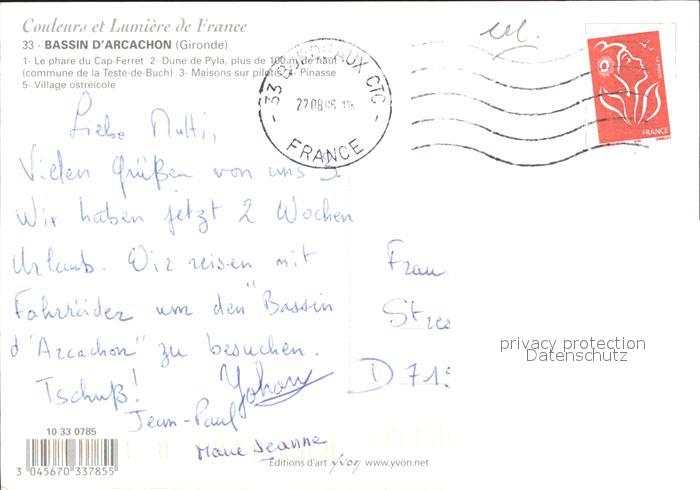 Couleurs et Lumière de France
33 - BASSIN D'ARCACHON (Gironde)
1- Le phare du Cap-Ferret 2- Dune de Pyla, plus de 100 m de haut
(commune de la Teste-de-Buch) 3- Maisons sur pilotis 4- Pinasse
5- Village ostréicole
33 BORDEAUX CTC
22 08 06
FRANCE
LA POSTE
FRANCE
Liebe Mutti,
Vielen Grüßen von uns 3
Wir haben jetzt 2 Wochen
Urlaub. Wir reisen mit
Fahrräder um den "Bassin
d'Arcachon" zu besuchen.
Tschuß! Yohan
Jean-Paul
Marie Jeanne
Frau
D 71
privacy protection
Datenschutz
10 33 0785
3 045670 337855
Editions d'art yvon www.yvon.net